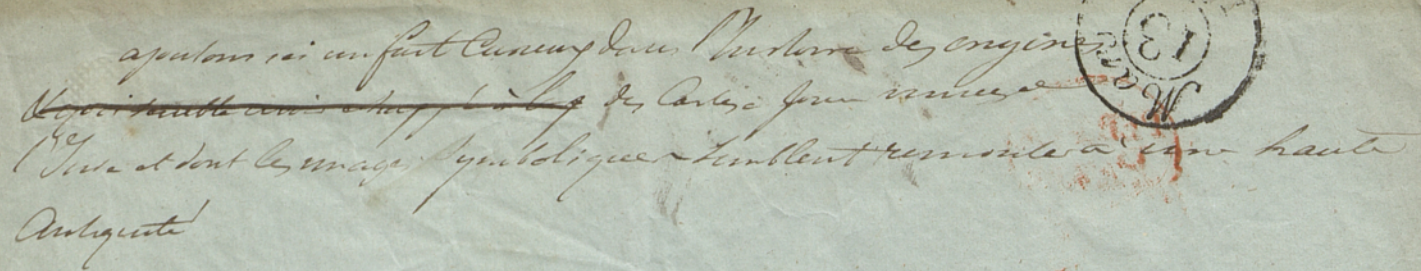 ajoutons ici un fait curieux dans l'histoire des origines
et qui semble avoir échappé à la des Cartes a jouer
l'Inde et dont les images symboliques semblent remonter a une haute
antiquité
13